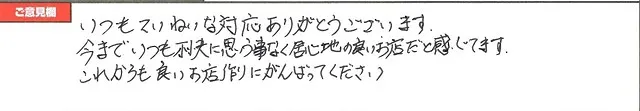 ご意見欄
いつもていねいな対応ありがとうございます.
今までいつも不快に思う事なく居心地の良いお店だと感じてます.
これからも良いお店作りにがんばってください